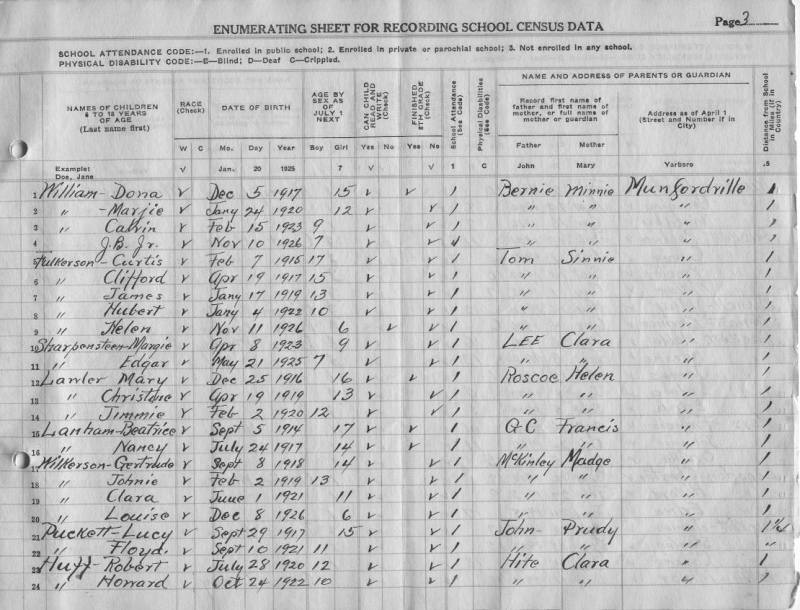 ENUMERATING SHEET FOR RECORDING SCHOOL CENSUS DATA Page 3
SCHOOL ATTENDANCE CODE:—1. Enrolled in public school; 2. Enrolled in private or parochial school; 3. Not enrolled in any school.
PHYSICAL DISABILITY CODE:—B—Blind; D—Deaf C—Crippled.
NAMES OF CHILDREN 6 TO 18 YEARS OF AGE (Last name first)
RACE (Check)
DATE OF BIRTH
AGE BY SEX AS OF JULY 1 NEXT
CAN CHILD READ AND WRITE (Check)
FINISHED 8TH GRADE (Check)
School Attendance (See Code)
Physical Disabilities (See Code)
NAME AND ADDRESS OF PARENTS OR GUARDIAN
Record first name of father and first name of mother, or full name of mother or guardian
Address as of April 1 (Street and Number if in City)
Distance from School in Miles (if in Country)
W C Mo. Day Year Boy Girl Yes No Yes No Father Mother
Example: Doe, Jane √ Jan. 20 1925 7 √ √ 1 C John Mary Yarboro .5
1 William - Dona v Dec 5 1917 15 v v 1 Bernie Minnie Munfordville 1
2 " - Marjie v Jany 24 1920 12 v v 1 " " " 1
3 " Calvin v Feb 15 1923 9 v v 1 " " " 1
4 J.B. Jr. v Nov 10 1926 7 v v 1 " " " 1
5 Fulkerson - Curtis v Feb 7 1915 17 v v 1 Tom Sinnie " 1
6 " Clifford v Apr 19 1917 15 v v 1 " " " 1
7 " James v Jany 17 1919 13 v v 1 " " " 1
8 " Hubert v Jany 4 1922 10 v v 1 " " " 1
9 " Helen v Nov 11 1926 6 v v 1 " " " 1
10 Sharpensteen - Margie v Apr 8 1923 9 v v 1 LEE Clara " 1
11 " Edgar v May 21 1925 7 v v 1 " " " 1
12 Lawler Mary v Dec 25 1916 16 v v 1 Roscoe Helen " 1
13 " Christine v Apr 19 1919 13 v v 1 " " " 1
14 " Jimmie v Feb 2 1920 12 v v 1 " " " 1
15 Lanham - Beatrice v Sept 5 1914 17 v v 1 Francis " 1
16 " Nancy v July 24 1917 14 v v 1 " " " 1
17 Wilkerson - Gertrude v Sept 8 1918 14 v v 1 McKinley Madge " 1
18 " Johnie v Feb 2 1919 13 v v 1 " " " 1
19 " Clara v June 1 1921 11 v v 1 " " " 1
20 " Louise v Dec 8 1926 6 v v 1 " " " 1
21 Puckett - Lucy v Sept 29 1917 15 v v 1 John - Prudy " 1¼
22 " Floyd. v Sept 10 1921 11 v v 1 " " " "
23 Huff - Robert v July 28 1920 12 v v 1 Hite Clara " 1
24 " Howard v Oct 24 1922 10 v v 1 " " " 1